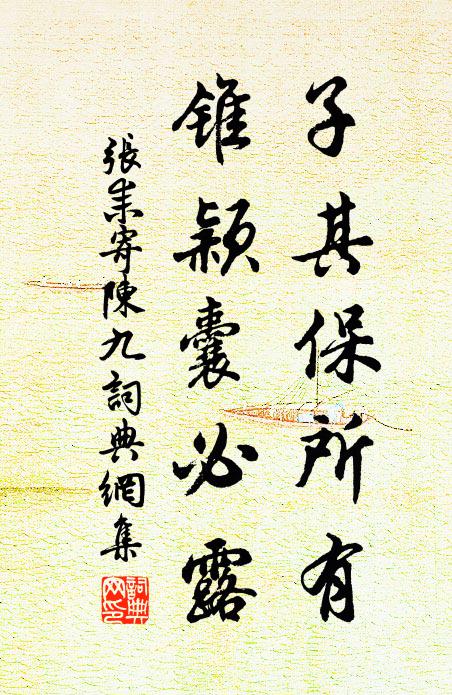 子其保所有
錐穎囊必露
張耒寄陳九詞典網集
詞典網印